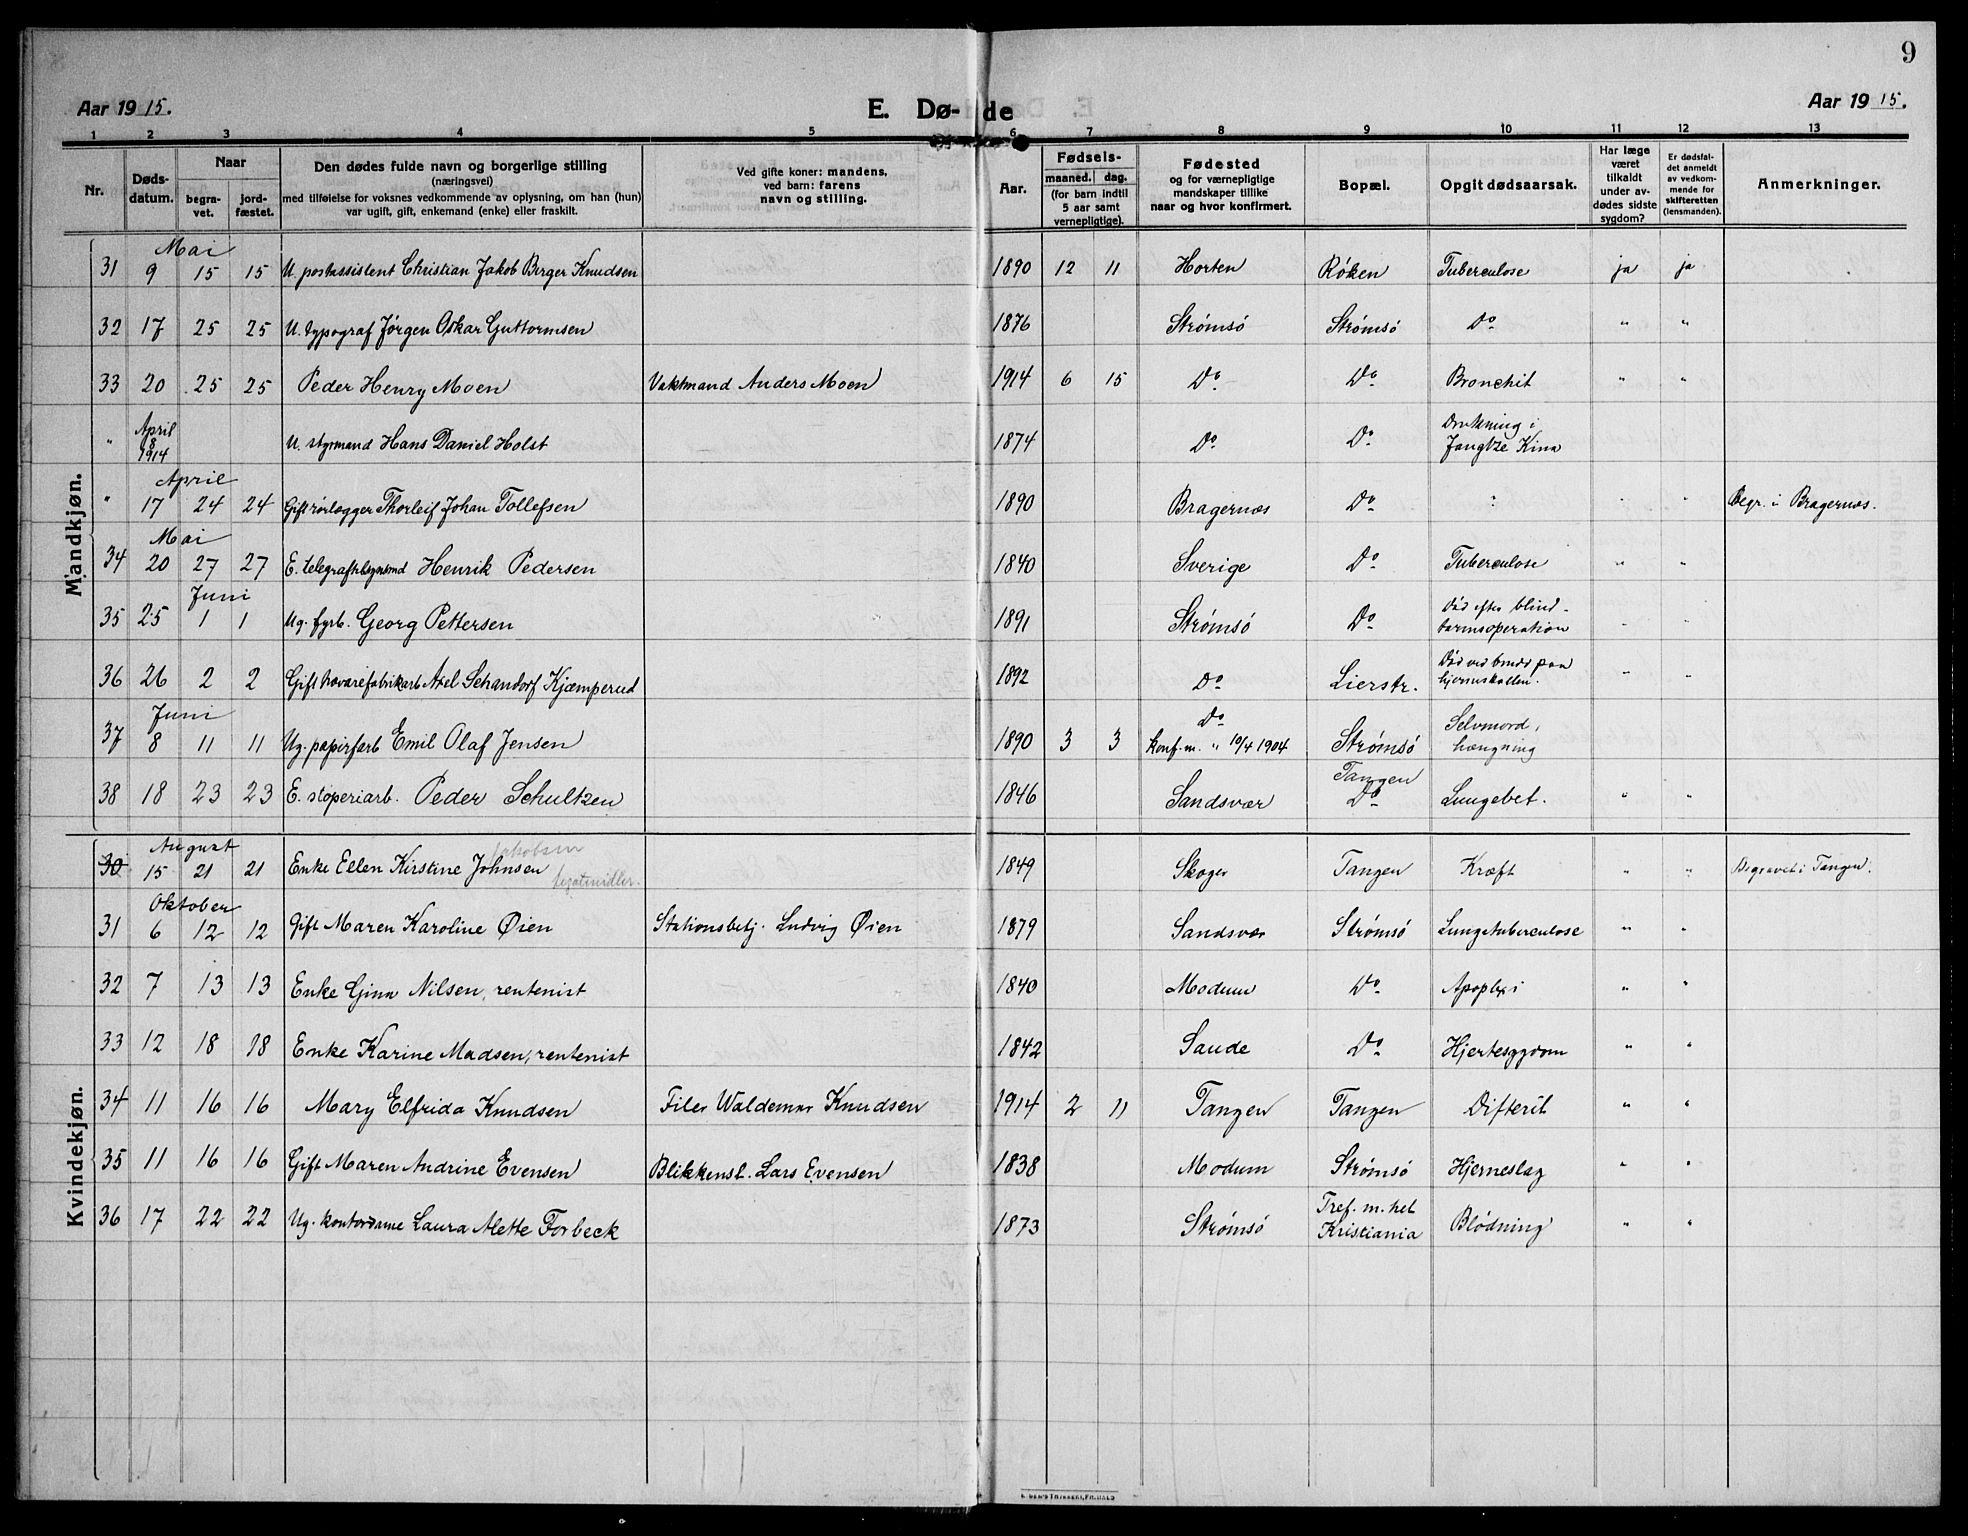 9
Aar 1915. E. Dø- de Aar 1915.
1 2 3 4 5 6 7 8 9 10 11 12 13
Nr. Døds-datum. Naar begra-vet. jord-fæstet. Den dødes fulde navn og borgerlige stilling (næringsvei) med tilføielse for voksnes vedkommende av oplysning, om han (hun) var ugift, gift, enkemand (enke) eller fraskilt. Ved gifte koner: mandens, ved barn: farens navn og stilling. Aar. Fødsels- maaned. dag. (for barn indtil 5 aar samt vernepligtige). Fødested og for værnepligtige mandskaper tillike naar og hvor konfirmert. Bopæl. Opgit dødsaarsak. Har læge været tilkaldt under av-dødes sidste sygdom? Er dødsfal-det anmeldt av vedkom-mende for skifteretten (lensmanden). Anmerkninger.
Mandkjøn.
Mai
31 9 15 15 U. postassistent Christian Jakob Birger Knudsen 1890 12 11 Horten Røken Tuberculose ja ja
32 17 25 25 U. typograf Jørgen Oskar Guttormsen 1876 Strømsø Strømsø Do " "
33 20 25 25 Peder Henry Moen Vaktmand Anders Moen 1914 6 15 Do Do Bronchit " "
" April 8 1914 U. styrmand Hans Daniel Holst 1874 Do Do Drukning i Jangtze Kina
April
" 17 24 24 Gift rørlægger Thorleif Johan Tollefsen 1890 Bragernæs Do " " " Begr. i Bragernæs.
Mai
34 20 27 27 E. Henrik Pedersen 1840 Sverige Do Tuberculose " "
Juni
35 25 1 1 Ug. fyrb. Georg Pettersen 1891 Strømsø Do Død efter blind-tarmsoperation " "
36 26 2 2 Gift Axel Schandorf Kjæmperud 1892 Do Lierstr. Død ved brudd paa hjerneskallen. " "
Juni
37 8 11 11 Ug. papirfarb Emil Olaf Jensen 1890 3 3 Do konf. m. " 10/4 1904 Strømsø Selvmord, hængning
38 18 23 23 E. stoperiarb. Peder Schultzen 1846 Sandsvær Tangen Do Lungebet. " "
Kvindekjøn.
August
30 15 21 21 Enke Ellen Kirstine Johnsen Jakobsen 1849 Skoger Tangen Kræft " " Begravet i Tangen.
Oktober
31 6 12 12 Gift Maren Karoline Øien Stationsbetj. Ludvig Øien 1879 Sandsvær Strømsø Lungetuberculose " "
32 7 13 13 Enke Gina Nilsen, rentenist 1840 Modum Do Apoplexi " "
33 12 18 18 Enke Karine Madsen, rentenist 1842 Saude Do Hjertesygdom " "
34 11 16 16 Mary Elfrida Knudsen Filer Waldemar Knudsen 1914 2 11 Tangen Tangen Difterit " "
35 11 16 16 Gift Maren Andrine Evensen Blikkensl. Lars Evensen 1838 Modum Strømsø Hjerneslag " "
36 17 22 22 Ug. kontordame Laura Alette Forbeck 1873 Strømsø Tref. m. het Kristiania Blødning " "